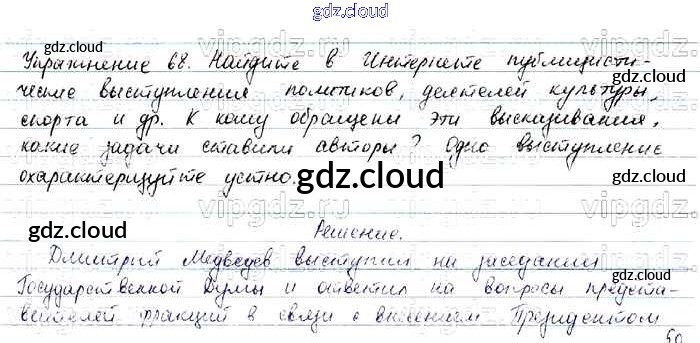 gdz.cloud
gdz.cloud
Упражнение 68. Найдите в Интернете публицисти-
gdz.cloud
ческие выступления политиков, деятелей культуры,
спорта и др. К кому обращены эти высказывания,
какие задачи ставили авторы? Одно выступление
охарактеризуйте устно.
gdz.cloud
gdz.cloud
gdz.cloud
Решение.
gdz.cloud
Дмитрий Медведев выступил на заседании
Государственной Думы и ответил на вопросы предста-
вителей фракций в связи с внесением Президентом